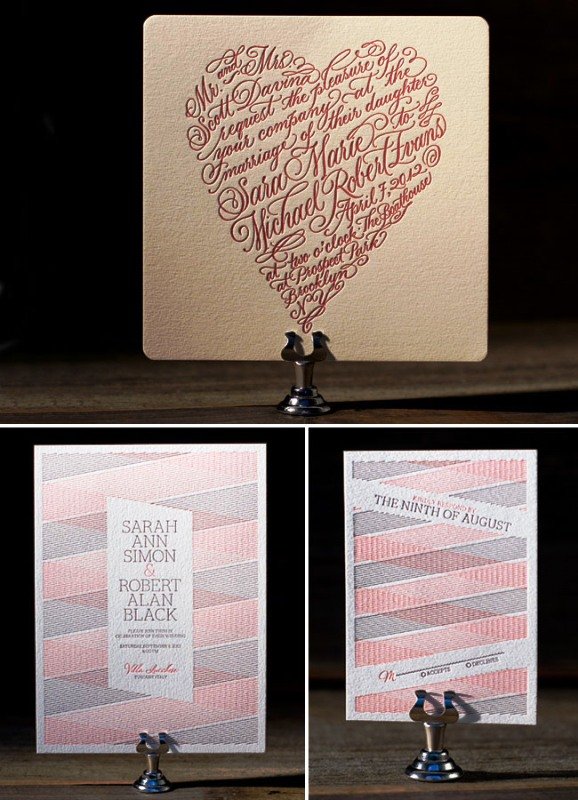 Mr. and Mrs.
Scott Davina
request the pleasure of
your company at the
marriage of their daughter
Sara Marie to
Michael Robert Evans
April 7, 2012
at two o'clock, The Boathouse
at Prospect Park
Brooklyn
NY
SARAH
ANN
SIMON
&
ROBERT
ALAN
BLACK
PLEASE JOIN THEM IN
CELEBRATION OF THEIR WEDDING
SATURDAY, SEPTEMBER
Villa
TUSCANY, ITALY
KINDLY RESPOND BY
THE NINTH OF AUGUST
M
ACCEPTS
DECLINES